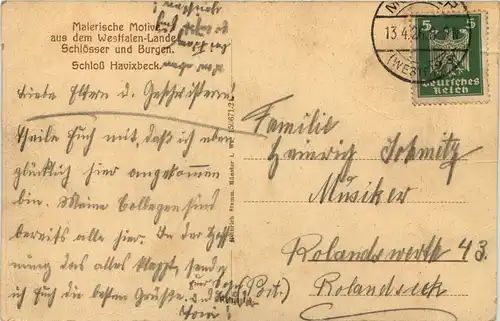 Malerische Motive
aus dem Westfalen-Lande
Schlösser und Burgen.
Schloß Havixbeck.
Liebe Eltern u. Geschwister!
Theile Euch mit, daß ich eben
glücklich hier angekommen
bin. Meine Collegen sind
bereits alle hier. In der Hoff-
nung das alles klappt, sende
ich Euch die besten Grüße.
Toni
13.4.2
(WESTF)
5 5
Deutsches
Reich
Familie
Heinrich Schmitz
Musiker
Rolandswerth 43.
(Post.) Rolandseck